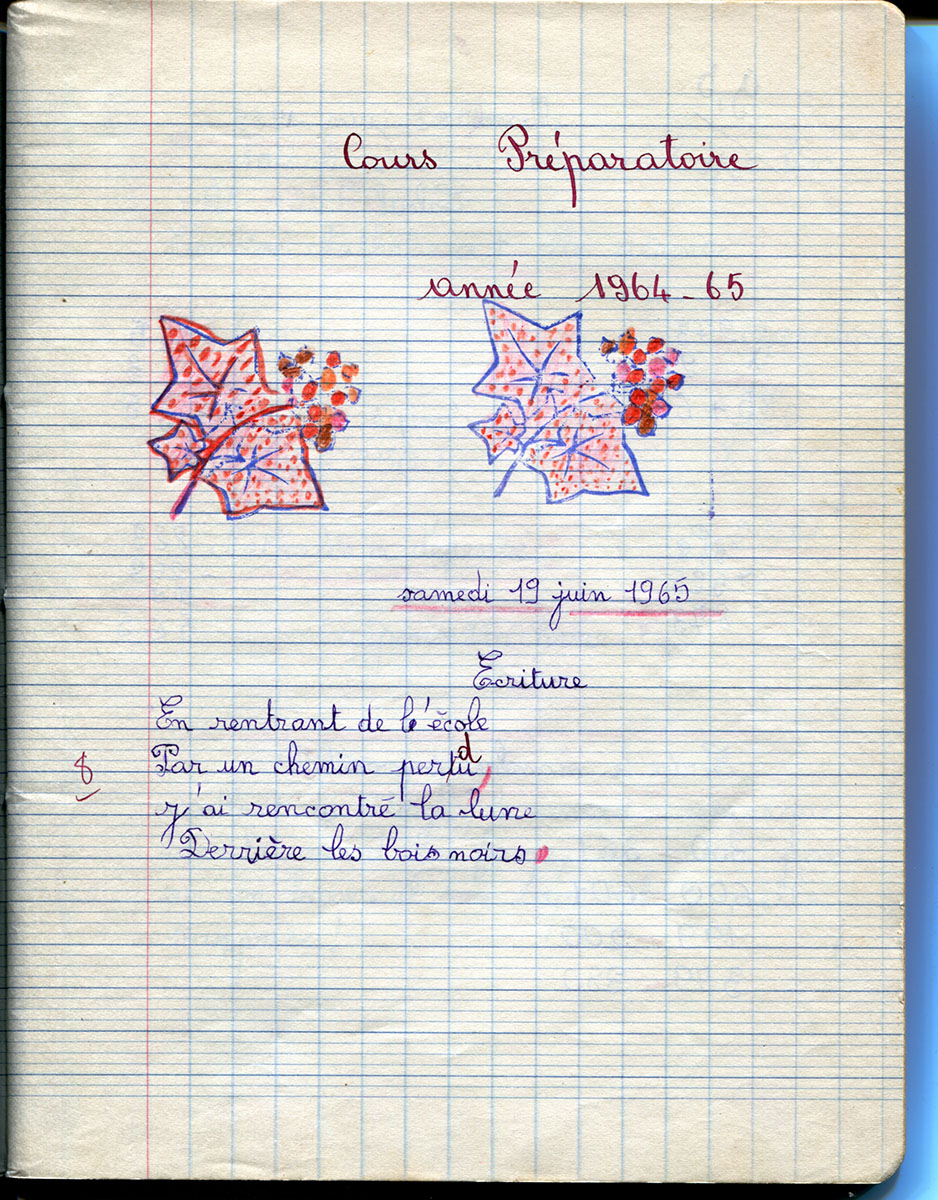 Cours Préparatoire
année 1964-65
samedi 19 juin 1965
Ecriture
En rentrant de l'école
8 Par un chemin perdu,
j'ai rencontré la lune
Derrière les bois noirs.